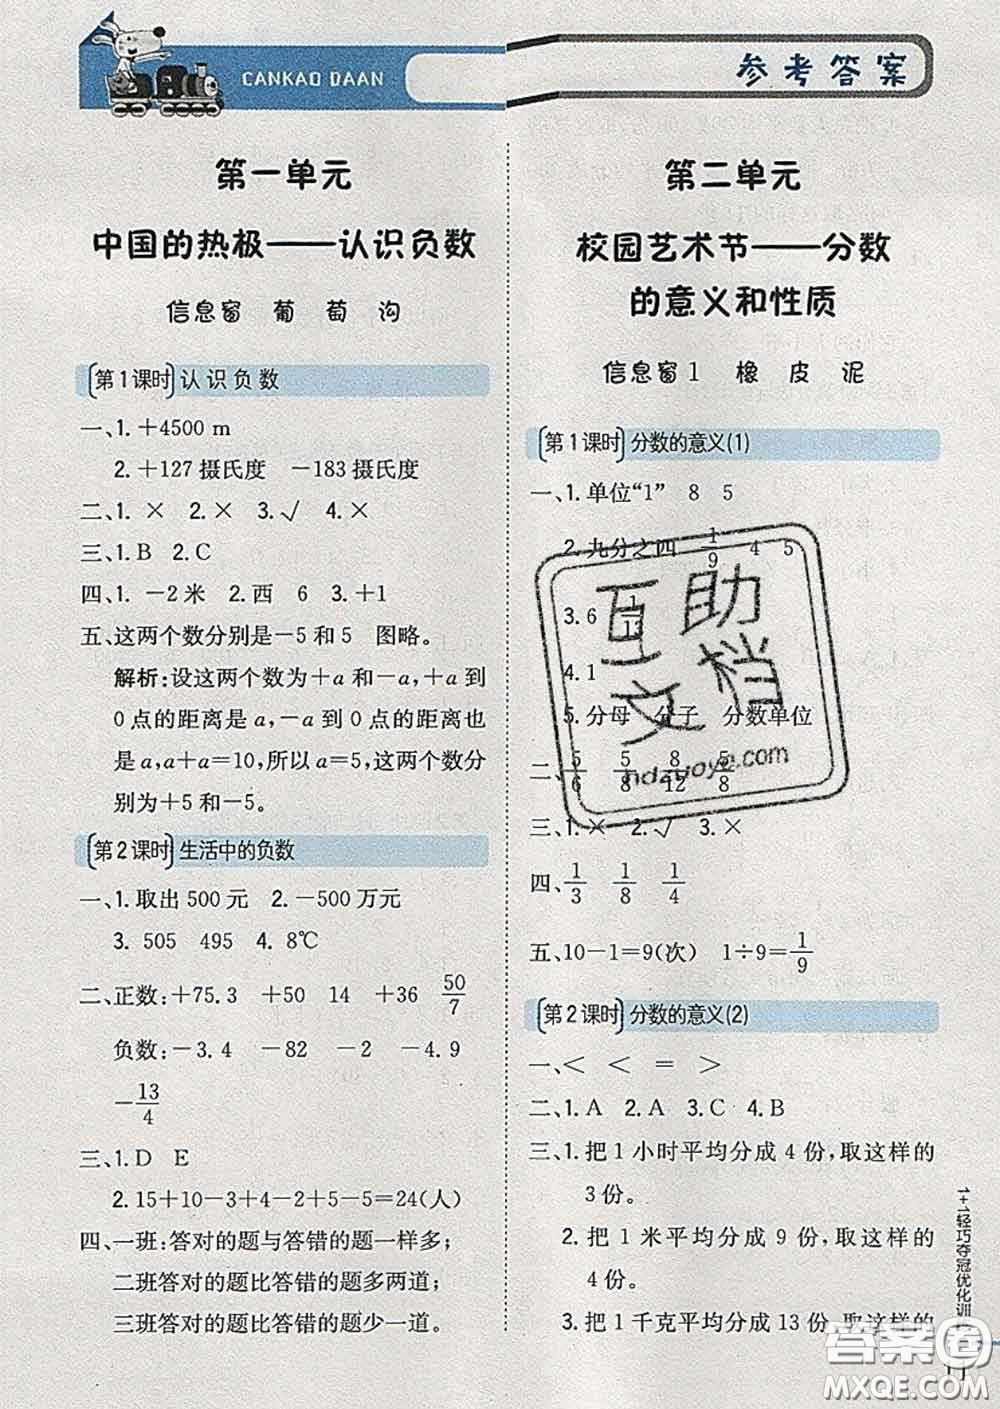 CANKAO DAAN
参考答案
第一单元
中国的热极——认识负数
信息窗 葡 萄 沟
第1课时 认识负数
一、1. +4500 m
2. +127摄氏度 -183摄氏度
二、1. × 2. × 3. √ 4. ×
三、1. B 2. C
四、1. -2米 2. 西 6 3. +1
五、这两个数分别是-5和5 图略。
解析:设这两个数为+a和-a,+a到
0点的距离是a,-a到0点的距离也
是a,a+a=10,所以a=5,这两个数分
别为+5和-5。
第2课时 生活中的负数
一、1. 取出500元 2. -500万元
3. 505 495 4. 8℃
二、正数:+75.3 +50 14 +36 50/7
负数:-3.4 -82 -2 -4.9
-13/4
三、1. D E
2. 15+10-3+4-2+5-5=24(人)
四、一班:答对的题与答错的题一样多;
二班答对的题比答错的题多两道;
三班答对的题比答错的题少一道。
第二单元
校园艺术节——分数
的意义和性质
信息窗1 橡 皮 泥
第1课时 分数的意义(1)
一、1. 单位“1” 8 5
2. 九分之四 1/9 4 5
3. 6 1/13
4. 1
5. 分母 分子 分数单位
二、5/6 5/8 8/12 5/8
三、1. × 2. √ 3. ×
四、1/3 1/8 1/4
五、10-1=9(次) 1÷9=1/9
第2课时 分数的意义(2)
一、< < = >
二、1. A 2. A 3. C 4. B
三、1. 把1小时平均分成4份,取这样的
3份。
2. 把1米平均分成9份,取这样的
4份。
3. 把1千克平均分成13份,取这样的
1+1轻巧夺冠优化训
互助
文档
hdzuoye.com
答案圈
MXQE.COM